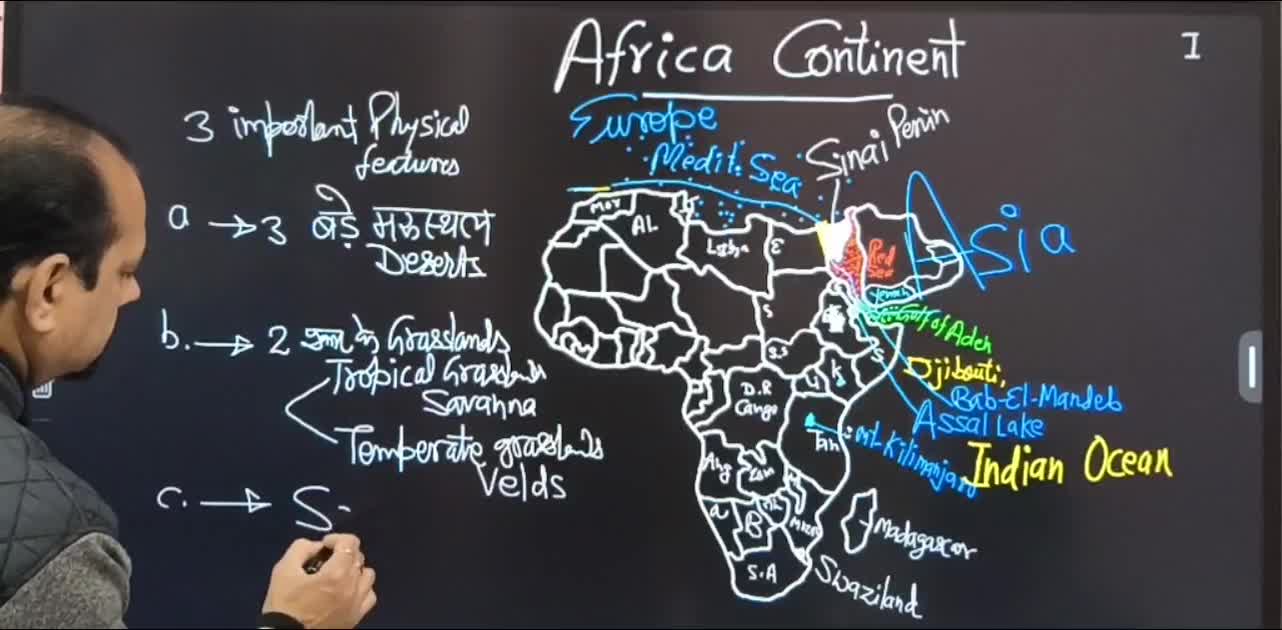 Africa Continent
I
3 important Physical
features
a → 3 बड़े मरुस्थल
Deserts
b. → 2 Grasslands
Tropical Grasslands
Savanna
Temperate grasslands
Velds
c. → S
Europe
Medit. Sea
Sinai Penin
Asia
Mor
AL
Libya
E
Red
Sea
Yemen
Gulf of Aden
S
S.S
Djibouti,
Bab-El-Mandeb
Assal Lake
Indian Ocean
K
U
S
D.R
Congo
Tan
Mt. Kilimanjaro
Ang
Zam
B
S.A
Madagascar
Swaziland